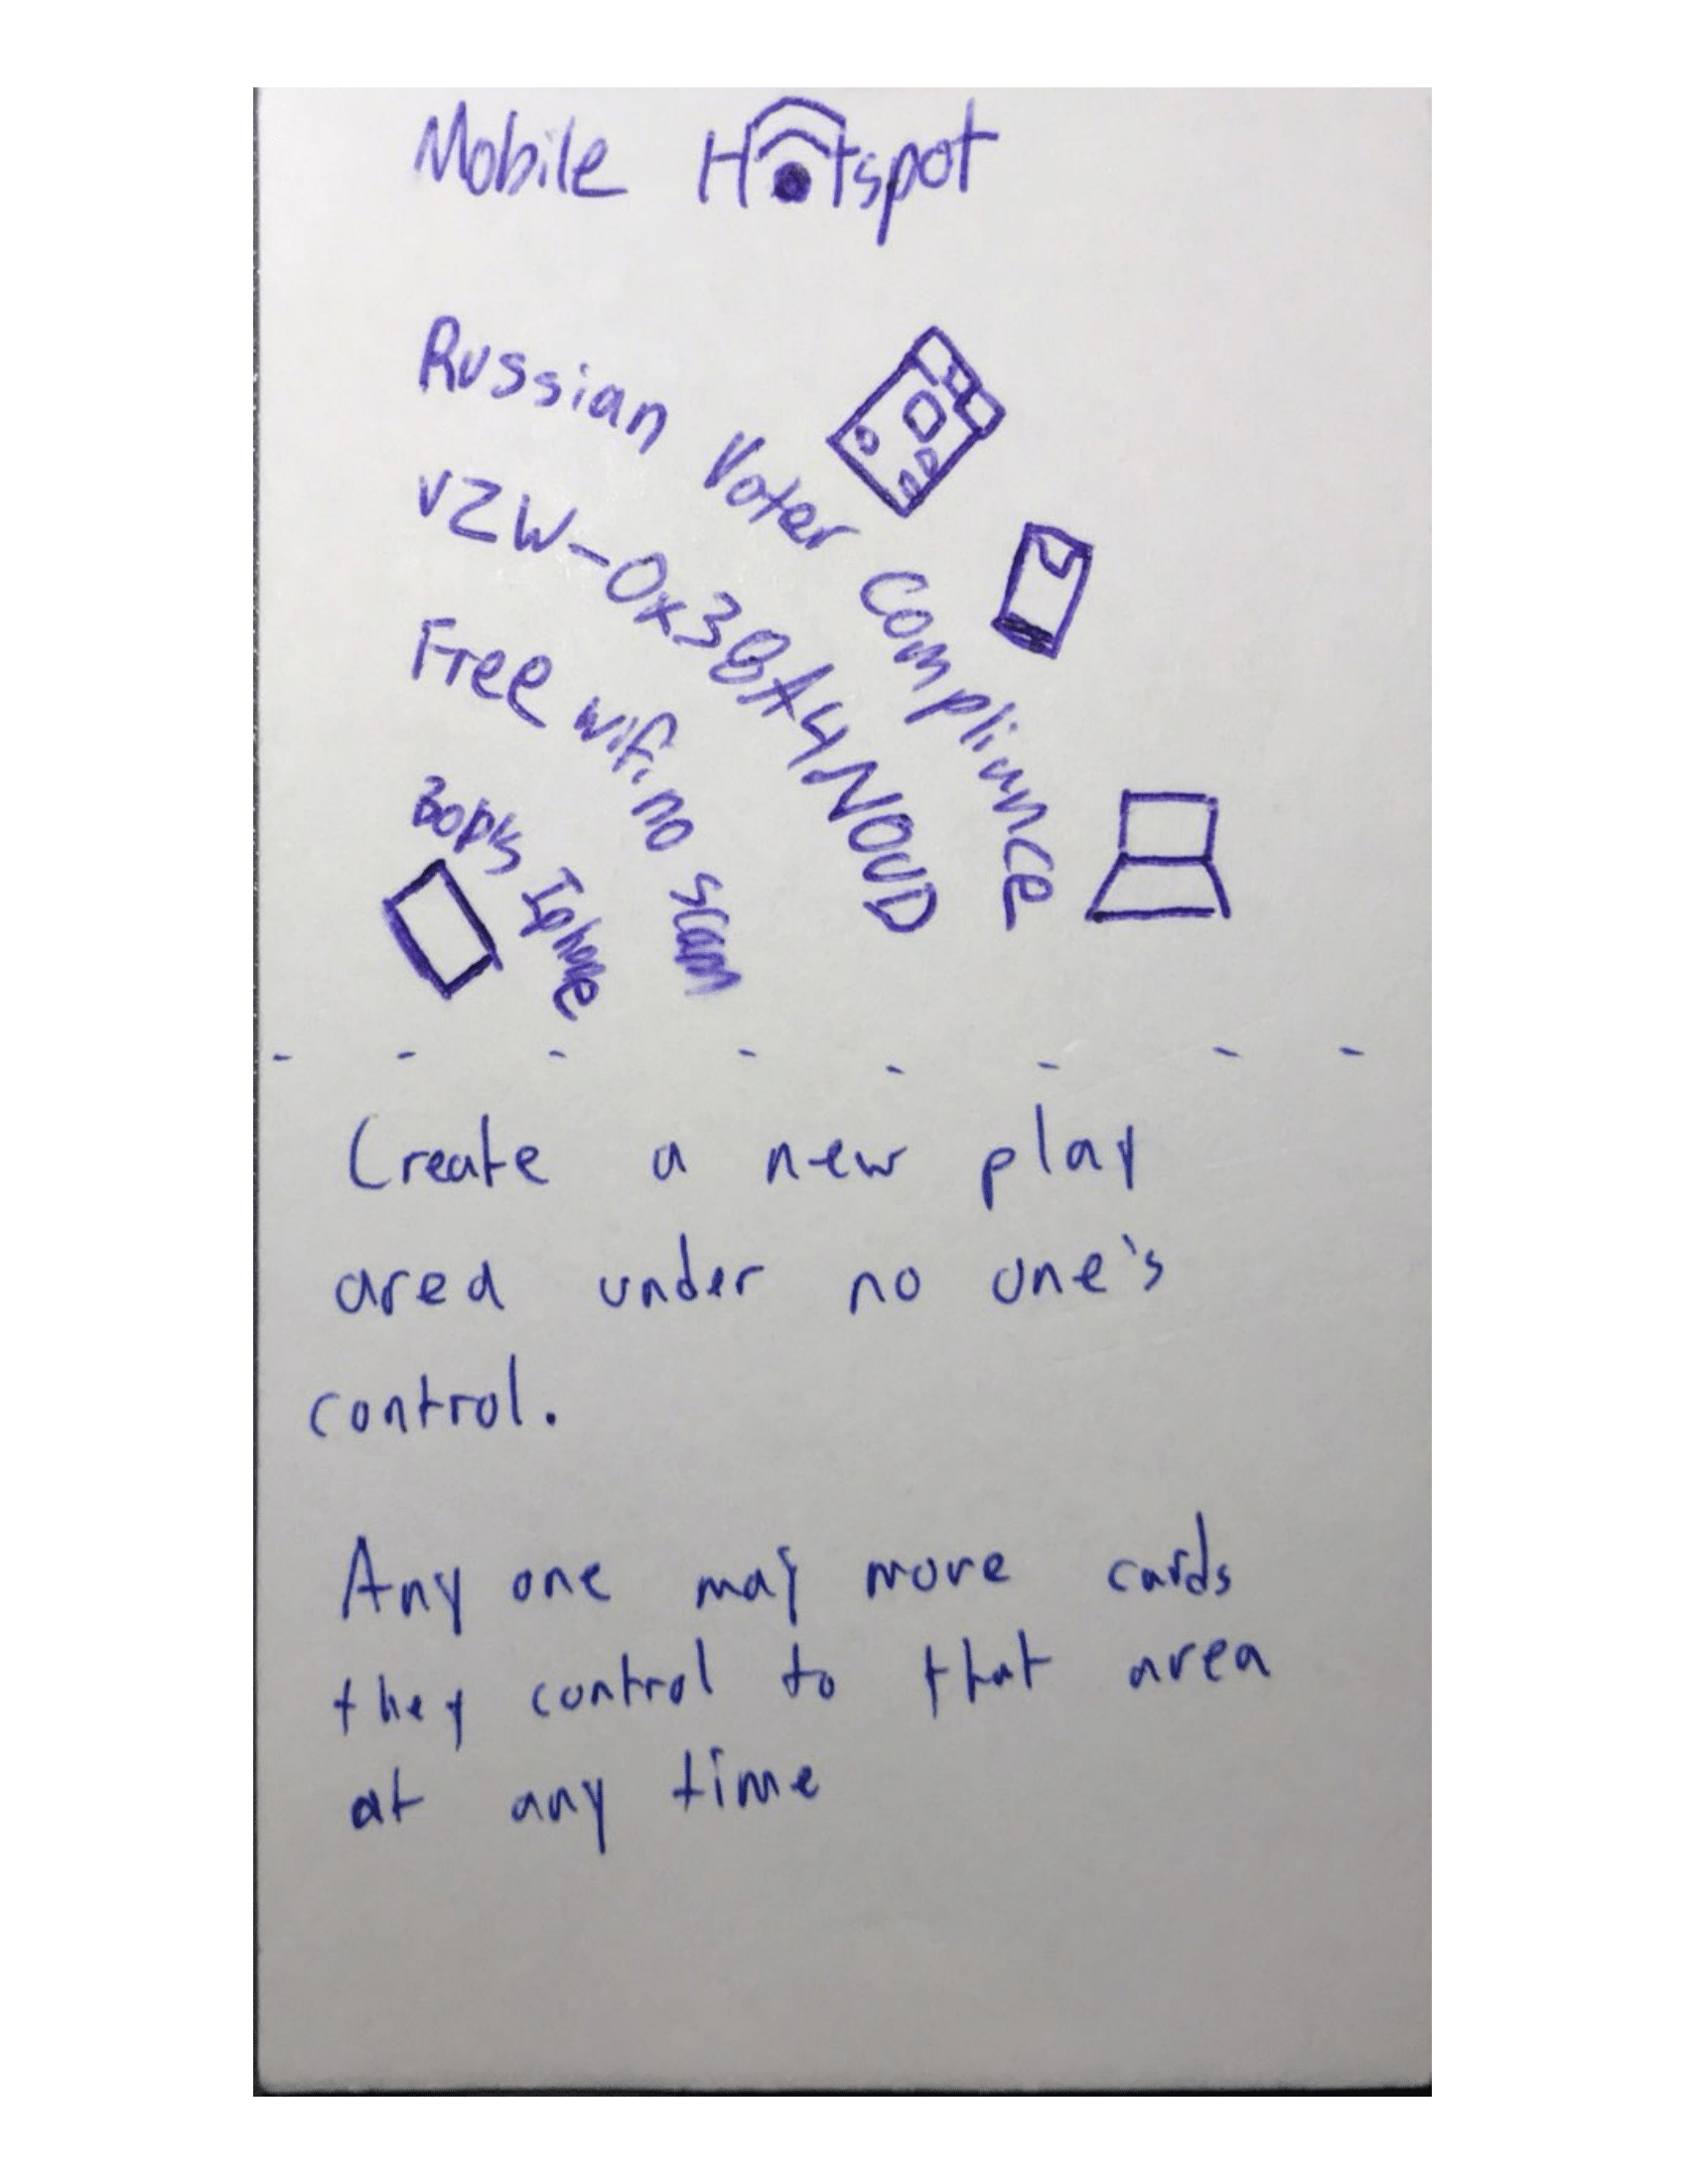 Mobile Hotspot
Russian Voter Compliance
VZW-0x38A4NOUD
Free wifi no scam
Bob's Iphone
Create a new play
area under no one's
control.
Any one may move cards
they control to that area
at any time